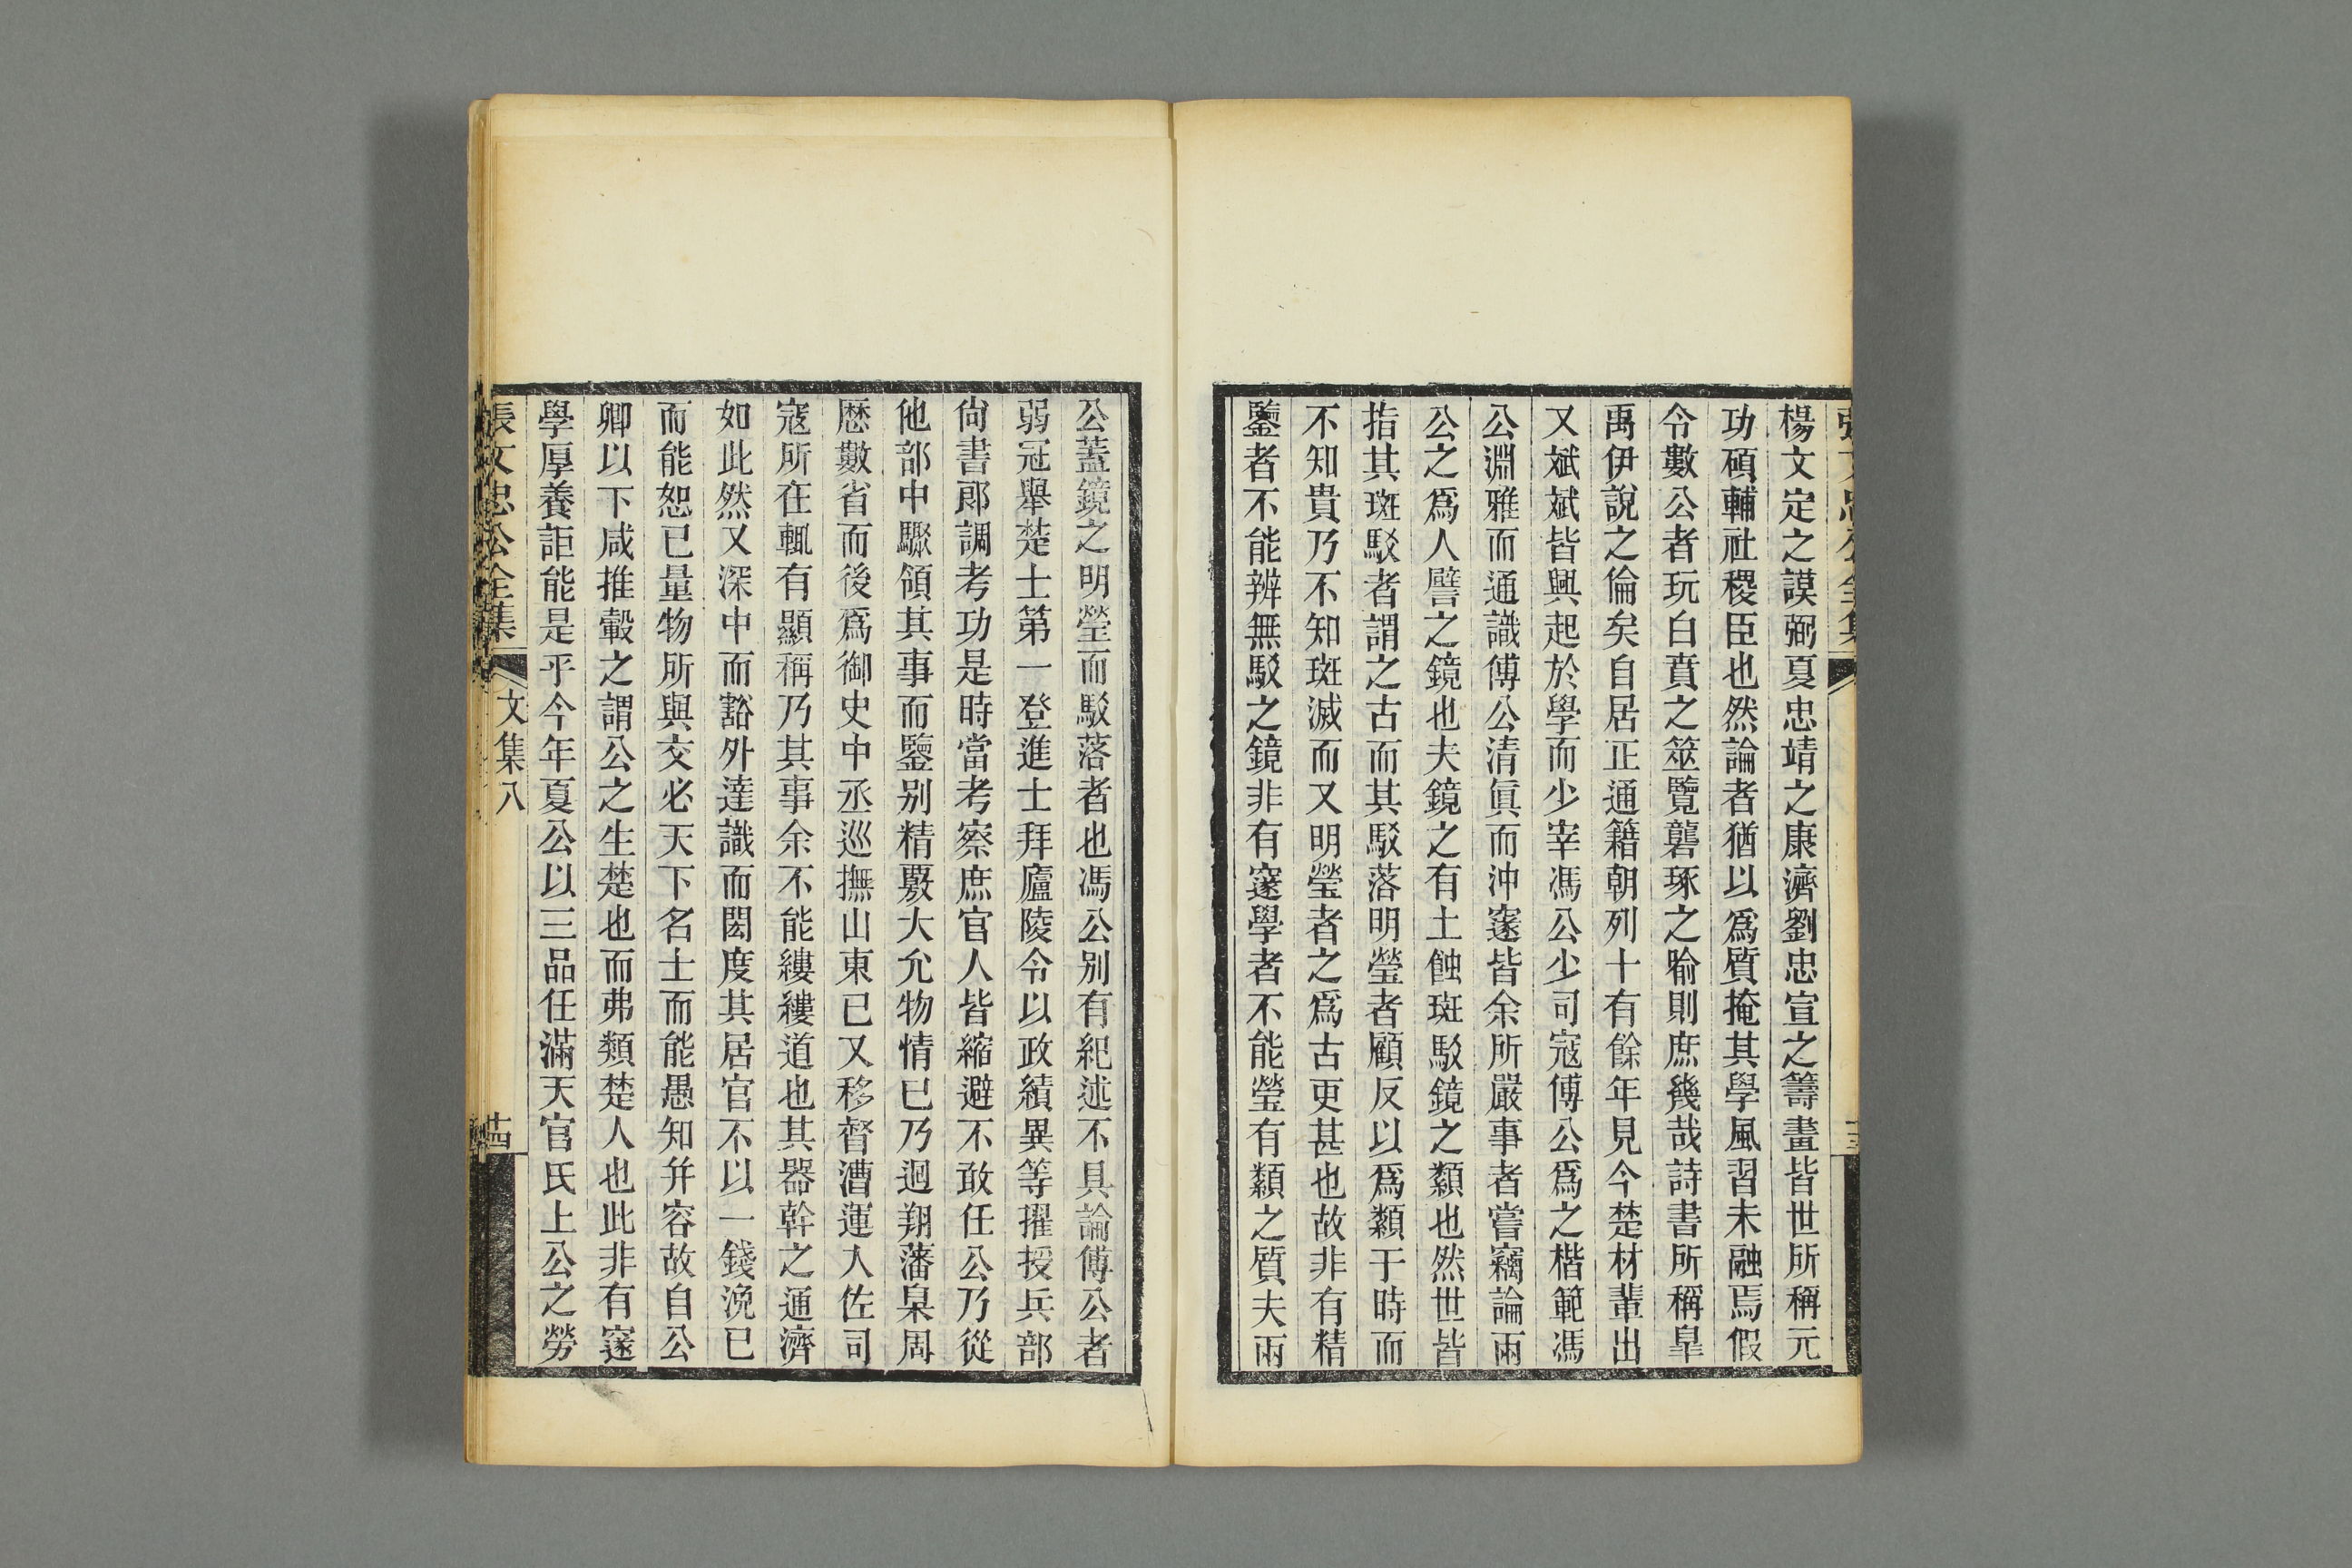 楊文定之謨弼夏忠靖之康濟劉忠宣之籌畫皆世所稱元
功碩輔社稷臣也然論者猶以爲質掩其學風習未融焉假
令數公者玩白賁之筮覽礱琢之喻則庶幾哉詩書所稱皐
禹伊說之倫矣自居正通籍朝列十有餘年見今楚材輩出
又斌斌皆興起於學而少宰馮公少司寇傅公爲之楷範馮
公淵雅而通識傅公清眞而沖邃皆余所嚴事者嘗竊論兩
公之爲人譬之鏡也夫鏡之有土蝕斑駁鏡之纇也然世皆
指其斑駁者謂之古而其駁落明瑩者顧反以爲纇于時而
不知貴乃不知斑滅而又明瑩者之爲古更甚也故非有精
鑒者不能辨無駁之鏡非有邃學者不能瑩有纇之質夫兩
公蓋鏡之明瑩而駁落者也馮公别有紀述不具論傅公者
弱冠舉楚士第一登進士拜廬陵令以政績異等擢授兵部
尙書郎調考功是時當考察庶官人皆縮避不敢任公乃從
他部中驟領其事而鑒别精覈大允物情已乃迴翔藩臬周
歷數省而後爲御史中丞巡撫山東已又移督漕運入佐司
寇所在輒有顯稱乃其事余不能縷縷道也其器幹之通濟
如此然又深中而豁外達識而閎度其居官不以一錢浼已
而能恕已量物所與交必天下名士而能愚知并容故自公
卿以下咸推轂之謂公之生楚也而弗類楚人也此非有邃
學厚養詎能是乎今年夏公以三品任滿天官氏上公之勞
張文忠公全集
文集八
廿四